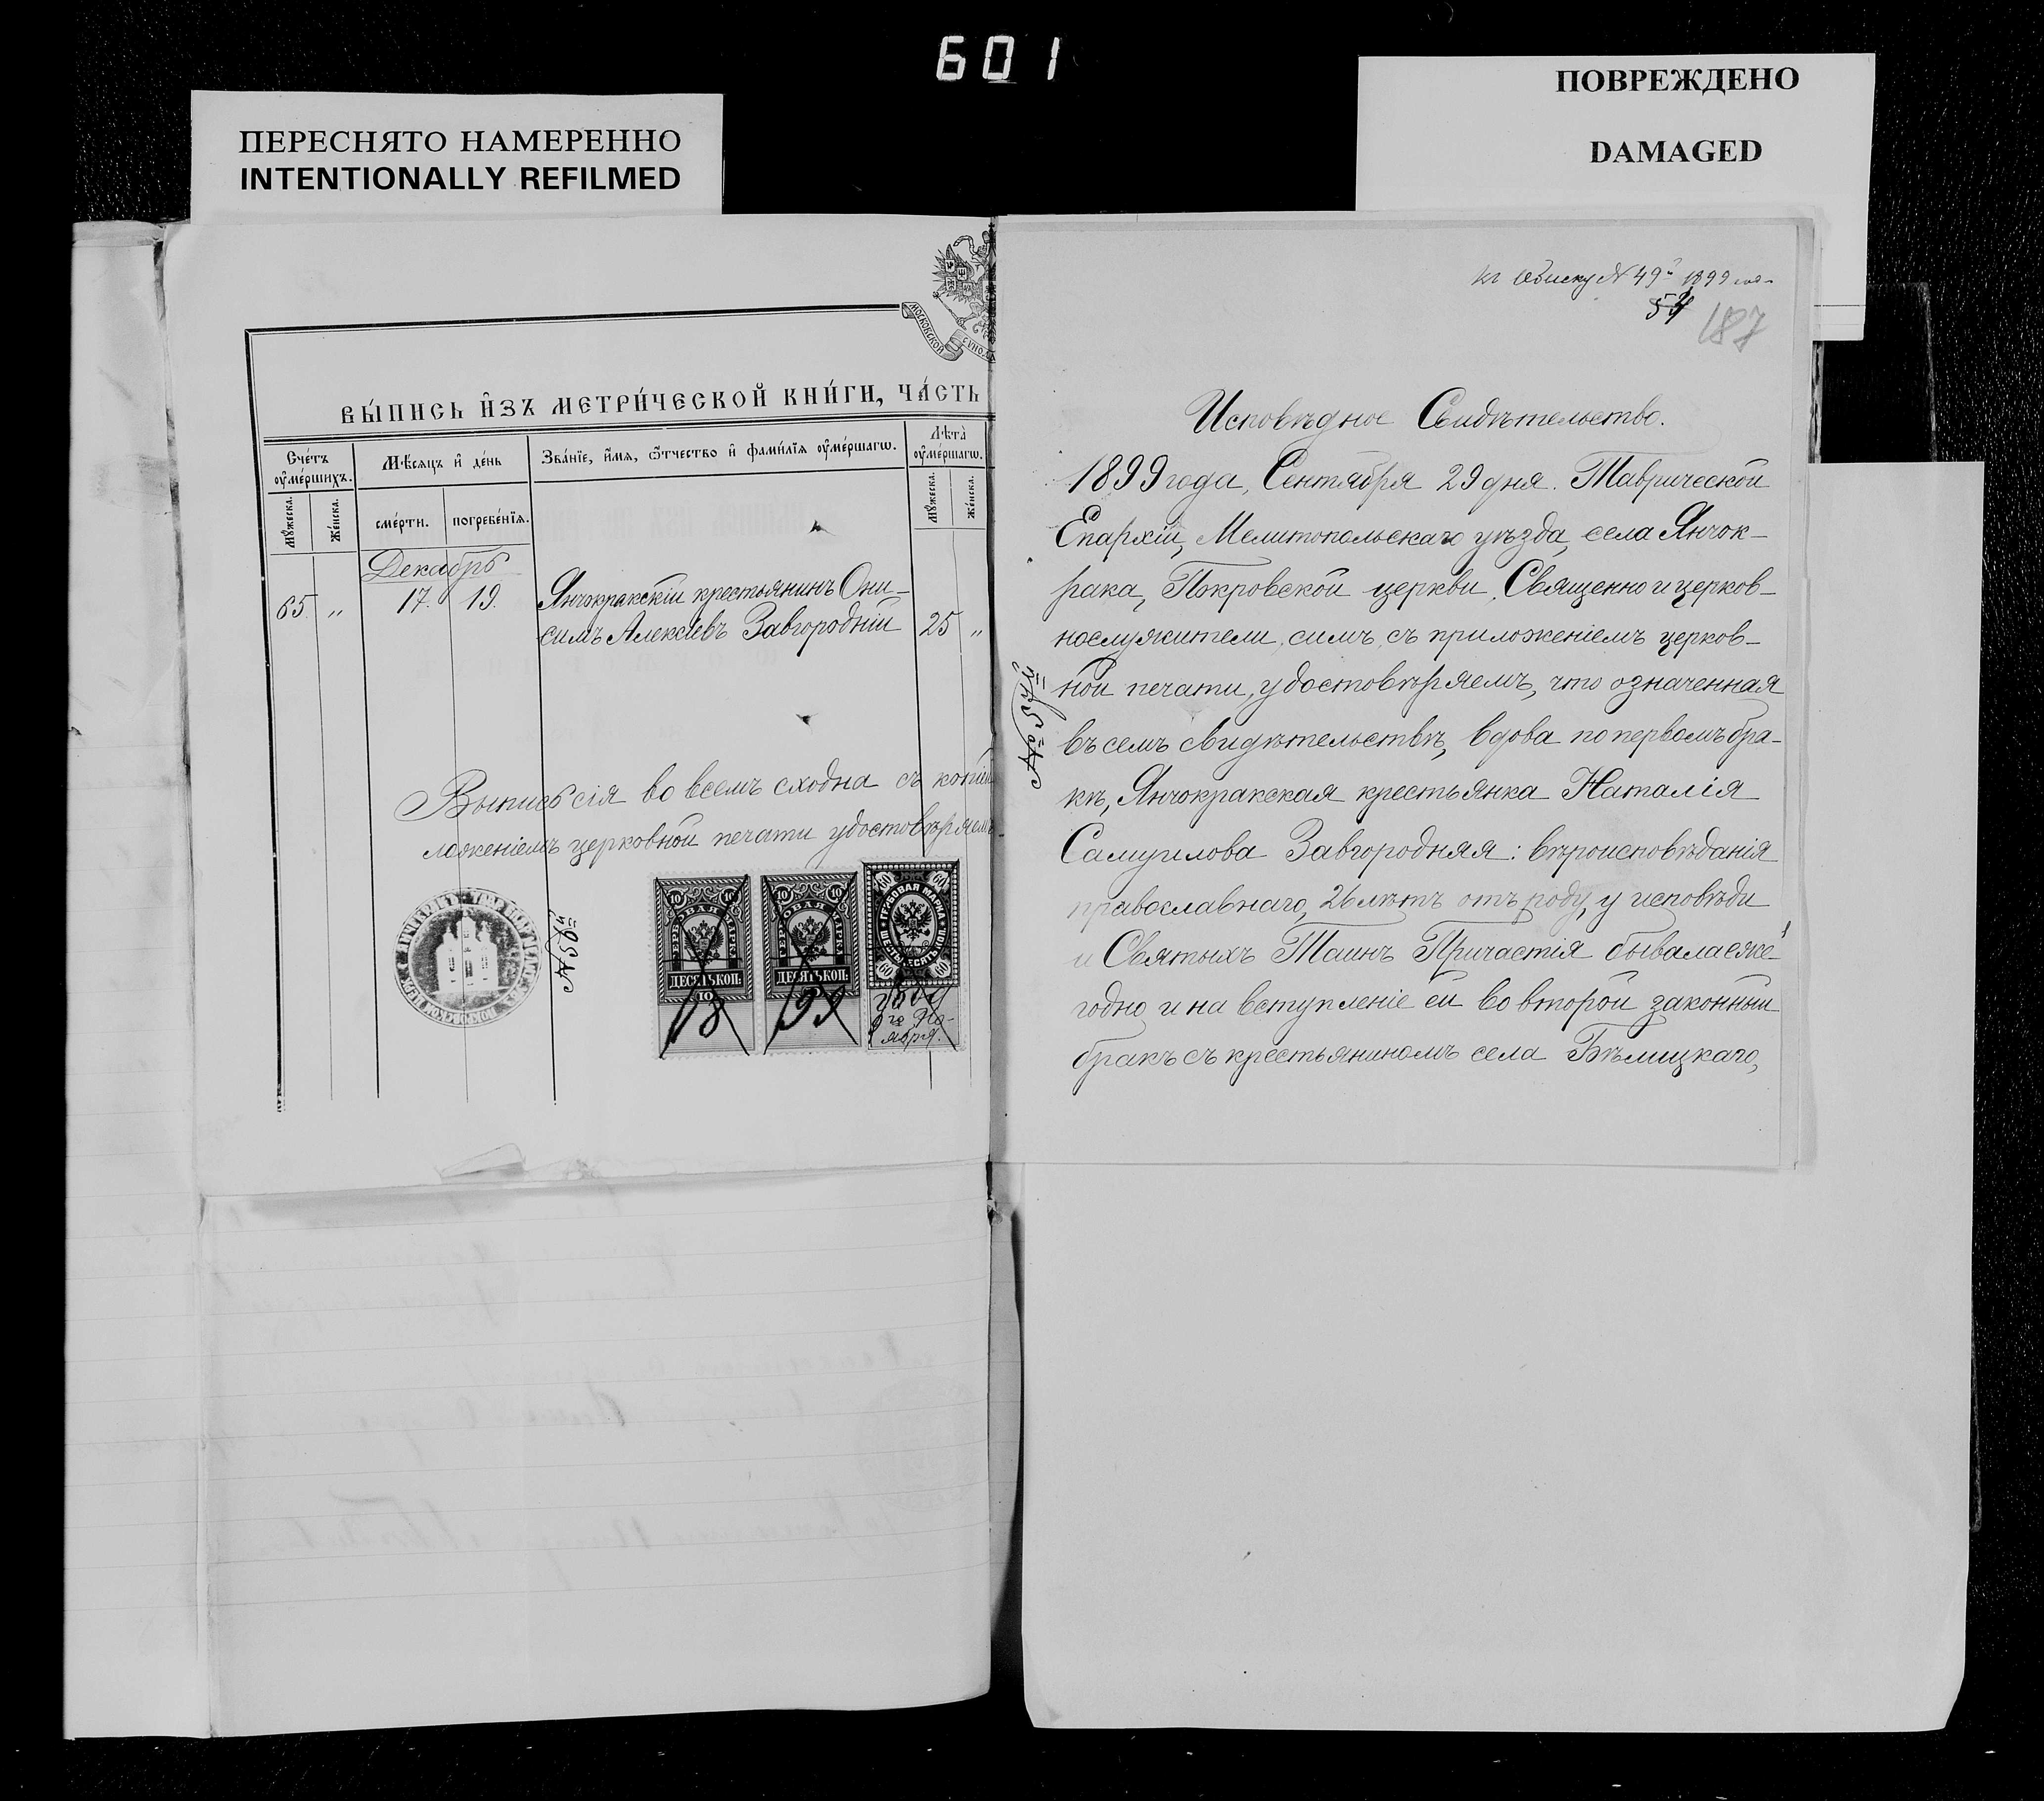 601
ПЕРЕСНЯТО НАМЕРЕННО
INTENTIONALLY REFILMED
ПОВРЕЖДЕНО
DAMAGED
МОСКОВСКОЙ
СѴНО
ВЫ́ПИСЬ И҆ЗЪ МЕТРИ́ЧЕСКОЙ КНИ́ГИ, ЧА́СТЬ
Сче́тъ оу҆ме́ршихъ.
Мѣ́сяцъ и҆ де́нь
Зва́нїе, и҆́мя, ѻ҆́тчество и҆ фами́лїя оу҆ме́ршагѡ.
Лѣта̀ оу҆ме́ршагѡ.
Мꙋ́жеска.
Же́нска.
сме́рти.
погребе́нїя.
Мꙋ́жеска.
Же́нска.
Декабрь
65 „ 17. 19. Янчокракскій крестьянинъ Они-
симъ Алексѣевъ Завгородній 25 „
Выпись сія во всемъ сходна съ копіей
ложеніемъ церковной печати удостовѣряемъ
№ 50й
10 10
ДЕСЯТЬ КОП:
10
18
10 10
ДЕСЯТЬ КОП:
99
60 60
ГЕРБОВАЯ МАРКА
ШЕСТЬДЕСЯТЪ КОП
60 60
года
Но-
ября.
къ Обыску № 49й 1899 год-
187
№ 54й
Исповѣдное Свидѣтельство.
1899 года, Сентября 29 дня. Таврической
Епархіи, Мелитопольскаго уѣзда, села Янчок-
рака, Покровской церкви, Священно и церков-
нослужители, симъ, съ приложеніемъ церков-
ной печати, удостовѣряемъ, что означенная
въ семъ свидѣтельствѣ, вдова по первомъ бра-
кѣ, Янчокракская крестьянка Наталія
Самуилова Завгородняя: вѣроисповѣданія
православнаго, 26 лѣтъ отъ роду, у исповѣди
и Святыхъ Таинъ Причастія бывала еже-
годно и на вступленіе ей во второй законный
бракъ съ крестьяниномъ села Бѣлицкаго,